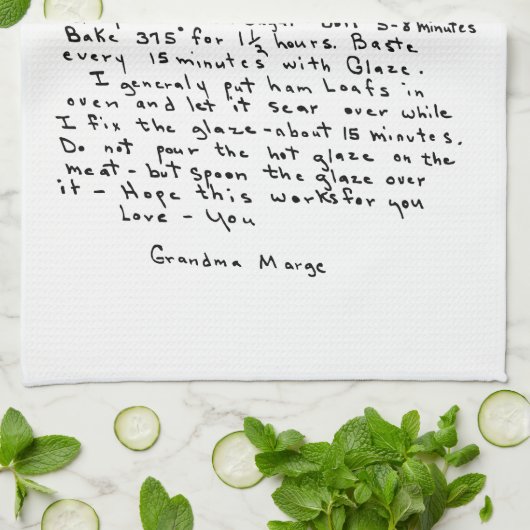 Sugar Boil 5-8 minutes
Bake 375° for 1 1/2 hours. Baste
every 15 minutes with Glaze.
I generaly put ham Loafs in
oven and let it sear over while
I fix the glaze - about 15 minutes.
Do not pour the hot glaze on the
meat - but spoon the glaze over
it - Hope this works for you
Love - You
Grandma Marge